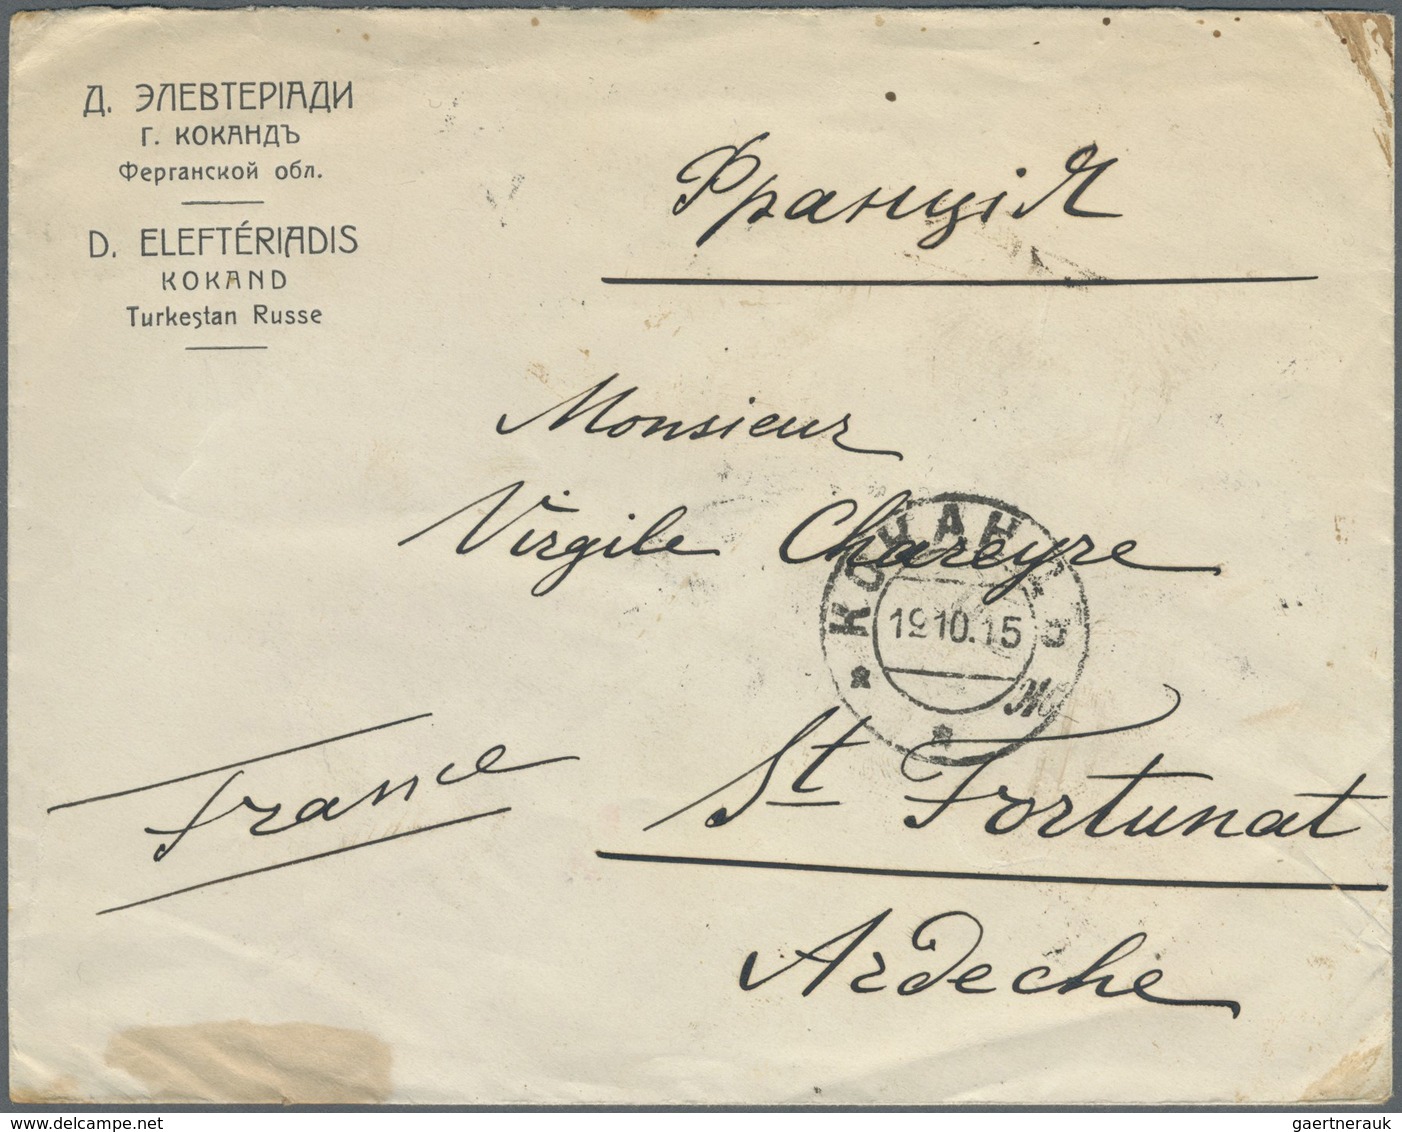 Д. ЭЛЕВТЕРІАДИ
Г. КОКАНДЪ
Ферганской обл.
D. ELEFTÉRIADIS
KOKAND
Turkestan Russe
Франція
Monsieur
Virgile Chareyre
КОКАНДЪ
19.10.15
France
St Fortunat
Ardeche
gaertnerauk